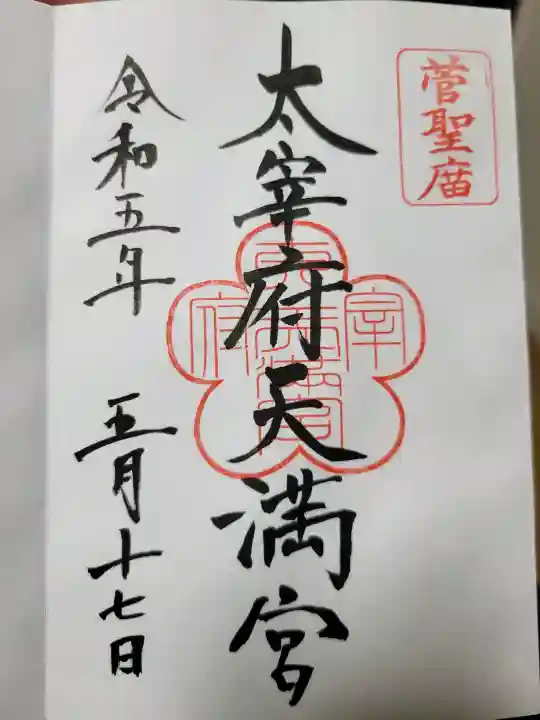 菅聖庿
太宰府天満宮
令和五年 五月十七日